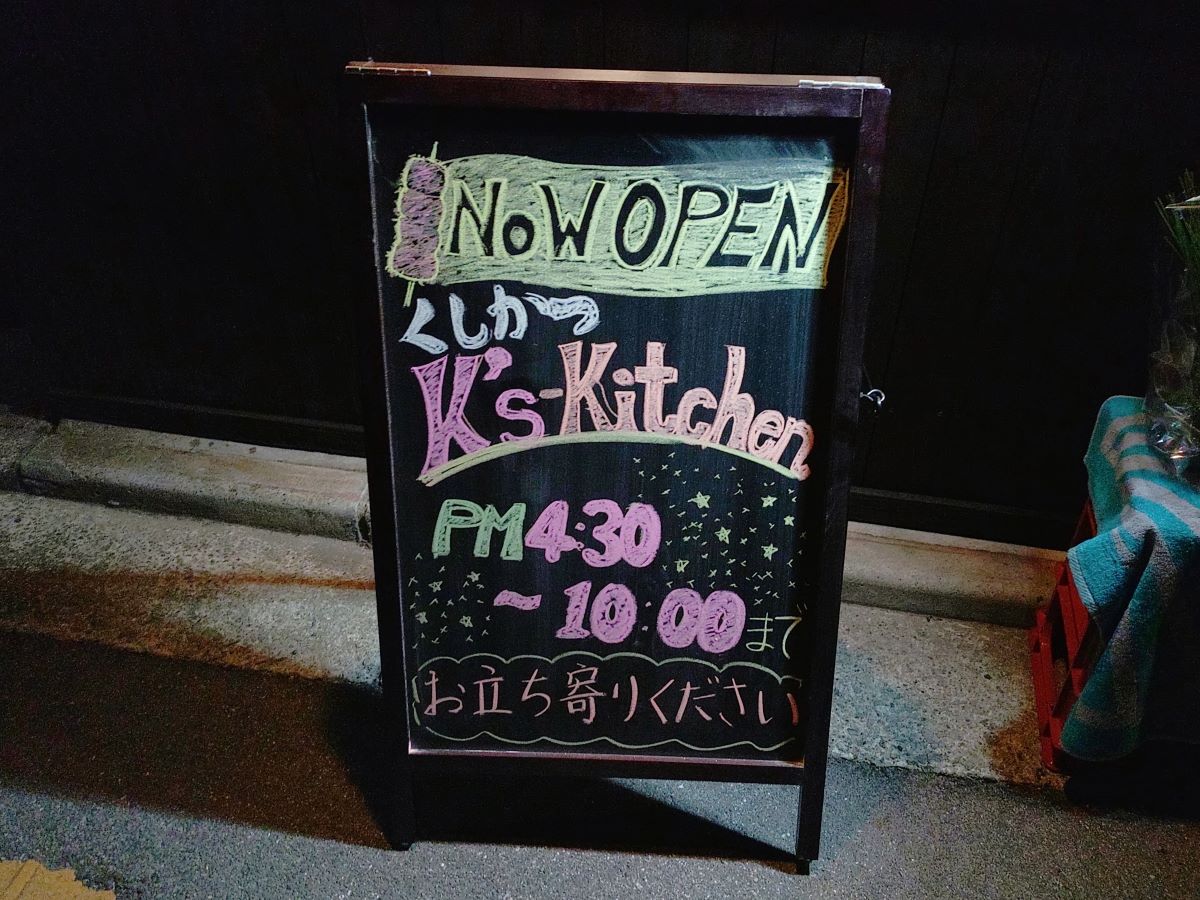 NOW OPEN
くしかつ
K's-Kitchen
PM 4:30
~10:00まで
お立ち寄りください